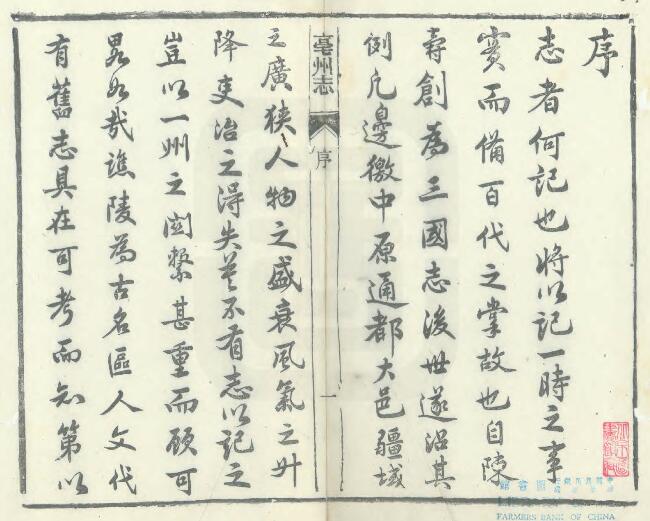 序
志者何記也將以記一時之事
實而備百代之掌故也自陳
壽創為三國志後世遂沿其
例凡邊徼中原通都大邑疆域
亳州志
序
一
之廣狹人物之盛衰風氣之升
降吏治之得失莫不有志以記之
豈以一州之關繫甚重而顧可
畧如哉譙陵為古名區人文代
有舊志具在可考而知第以
館書圖
FARMERS BANK OF CHINA